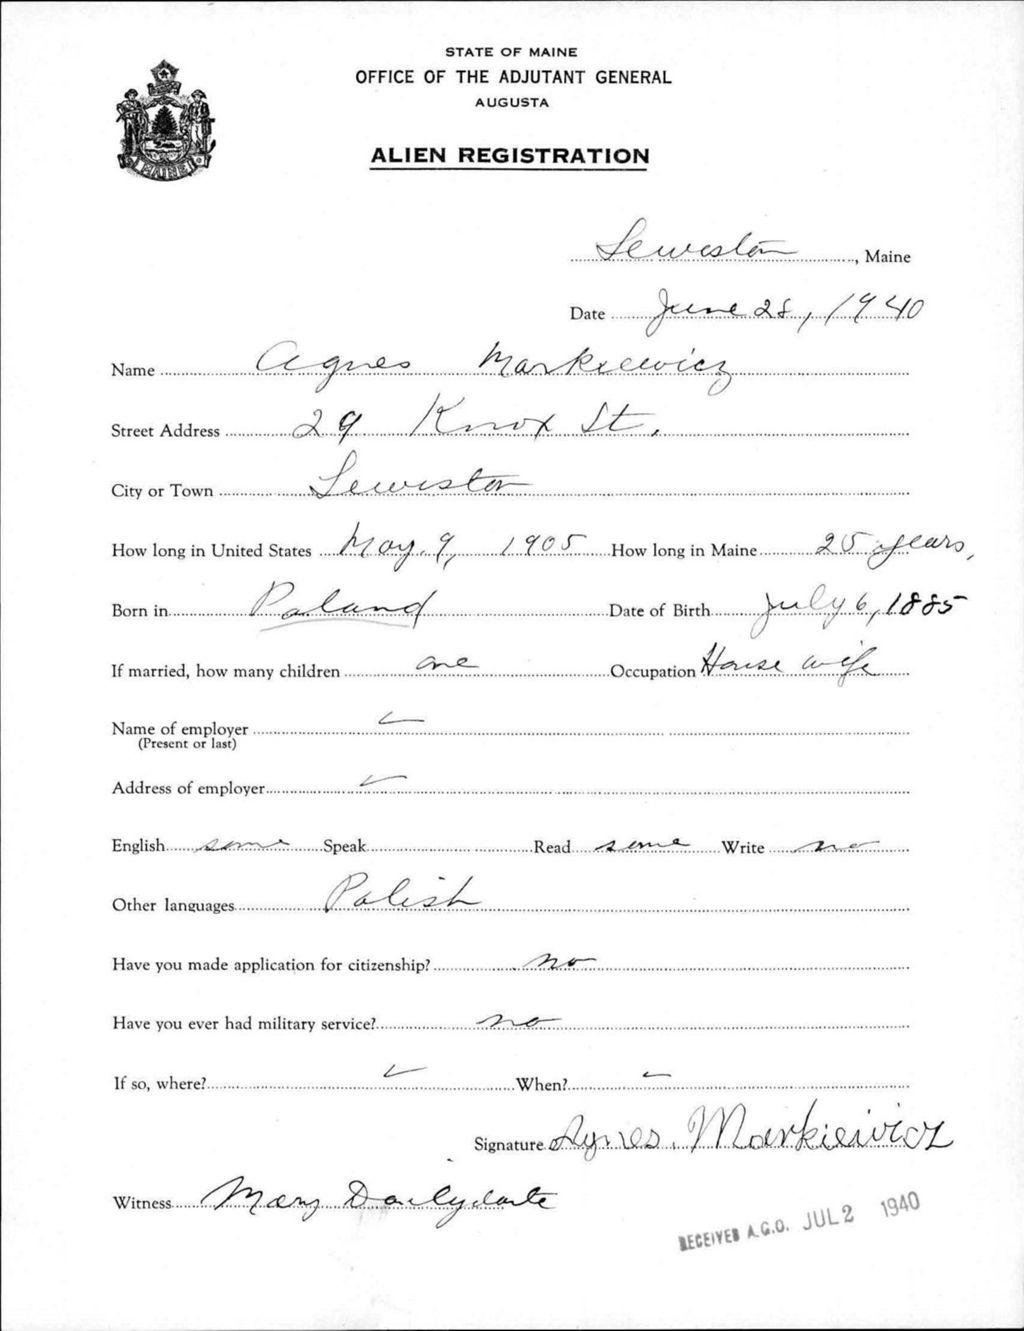 STATE OF MAINE
OFFICE OF THE ADJUTANT GENERAL
AUGUSTA
ALIEN REGISTRATION
MAINE
Lewiston, Maine
Date June 28, 1940
Name Agnes Markiewicz
Street Address 29 Knox St.
City or Town Lewiston
How long in United States May 9, 1905 How long in Maine 25 years,
Born in Poland Date of Birth July 6, 1885
If married, how many children one Occupation House wife
Name of employer
(Present or last)
Address of employer
English some Speak Read some Write no
Other languages Polish
Have you made application for citizenship? no
Have you ever had military service? no
If so, where? When?
Signature Agnes Markiewicz
Witness Mary
RECEIVED A.G.O. JUL 2 1940